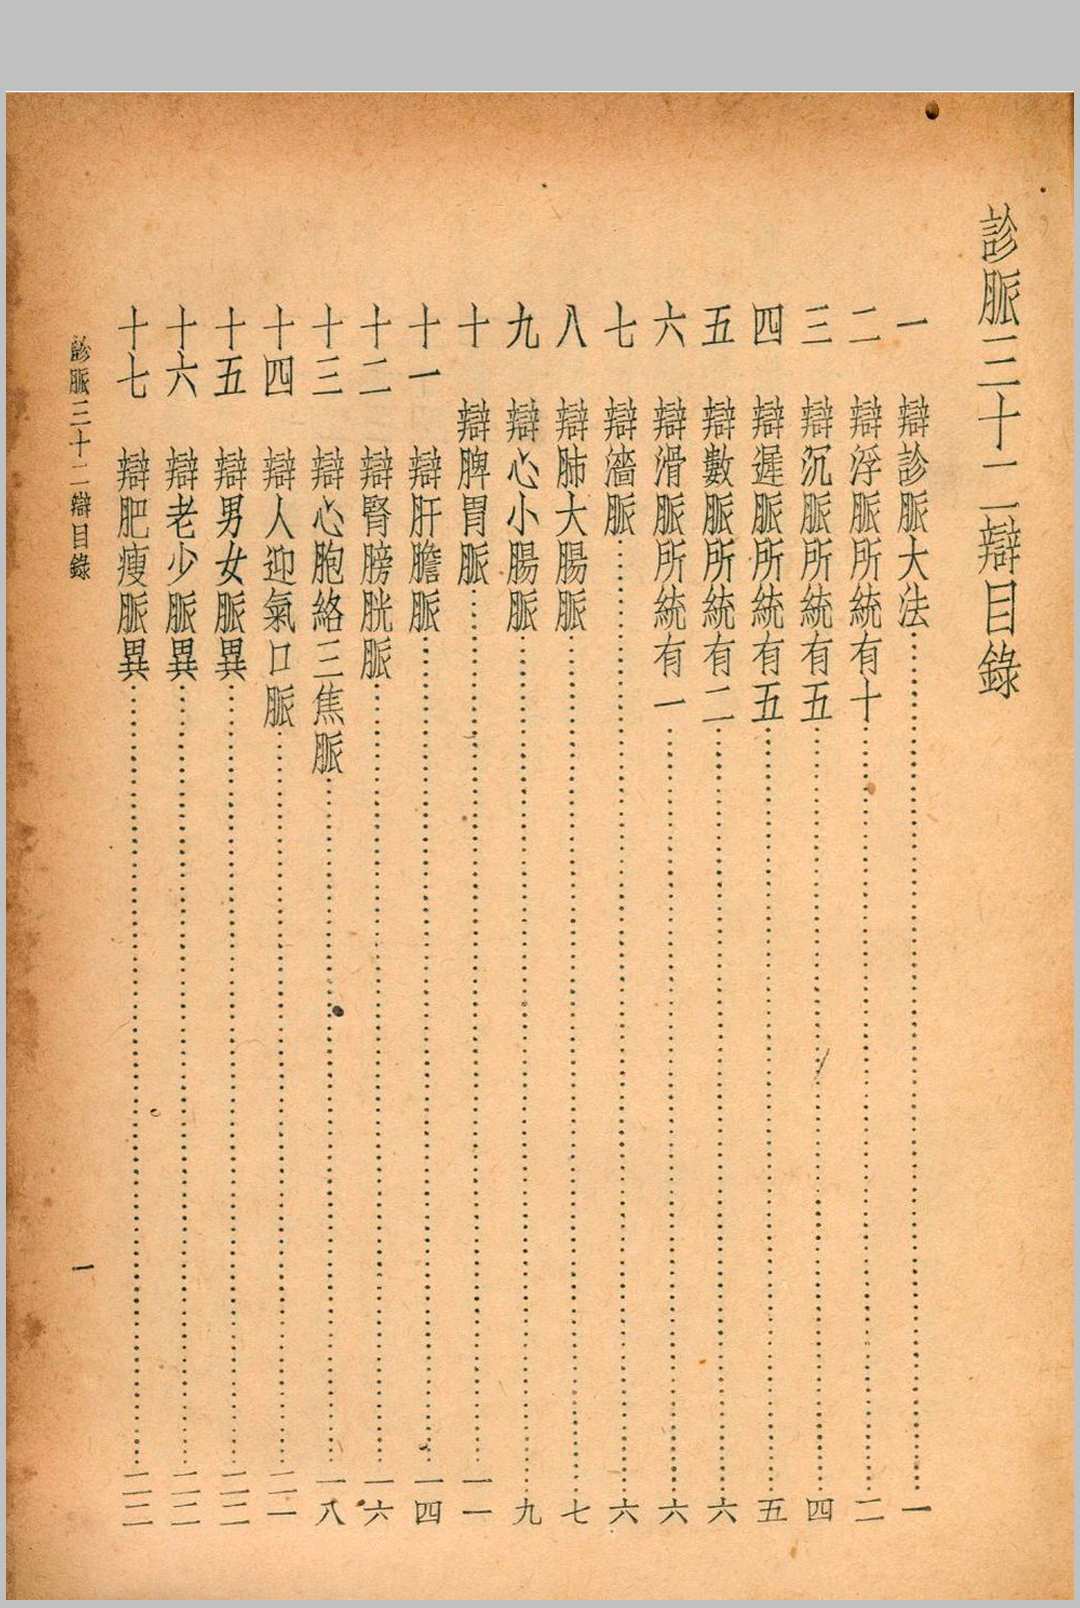 診脈三十二辯目錄
一　辯診脈大法……一
二　辯浮脈所統有十……二
三　辯沉脈所統有五……四
四　辯遲脈所統有五……五
五　辯數脈所統有二……六
六　辯滑脈所統有一……六
七　辯濇脈……六
八　辯肺大腸脈……七
九　辯心小腸脈……九
十　辯脾胃脈……一一
十一　辯肝膽脈……一四
十二　辯腎膀胱脈……一六
十三　辯心胞絡三焦脈……一八
十四　辯人迎氣口脈……二一
十五　辯男女脈異……二二
十六　辯老少脈異……二二
十七　辯肥瘦脈異……二二
診脈三十二辯目錄　一